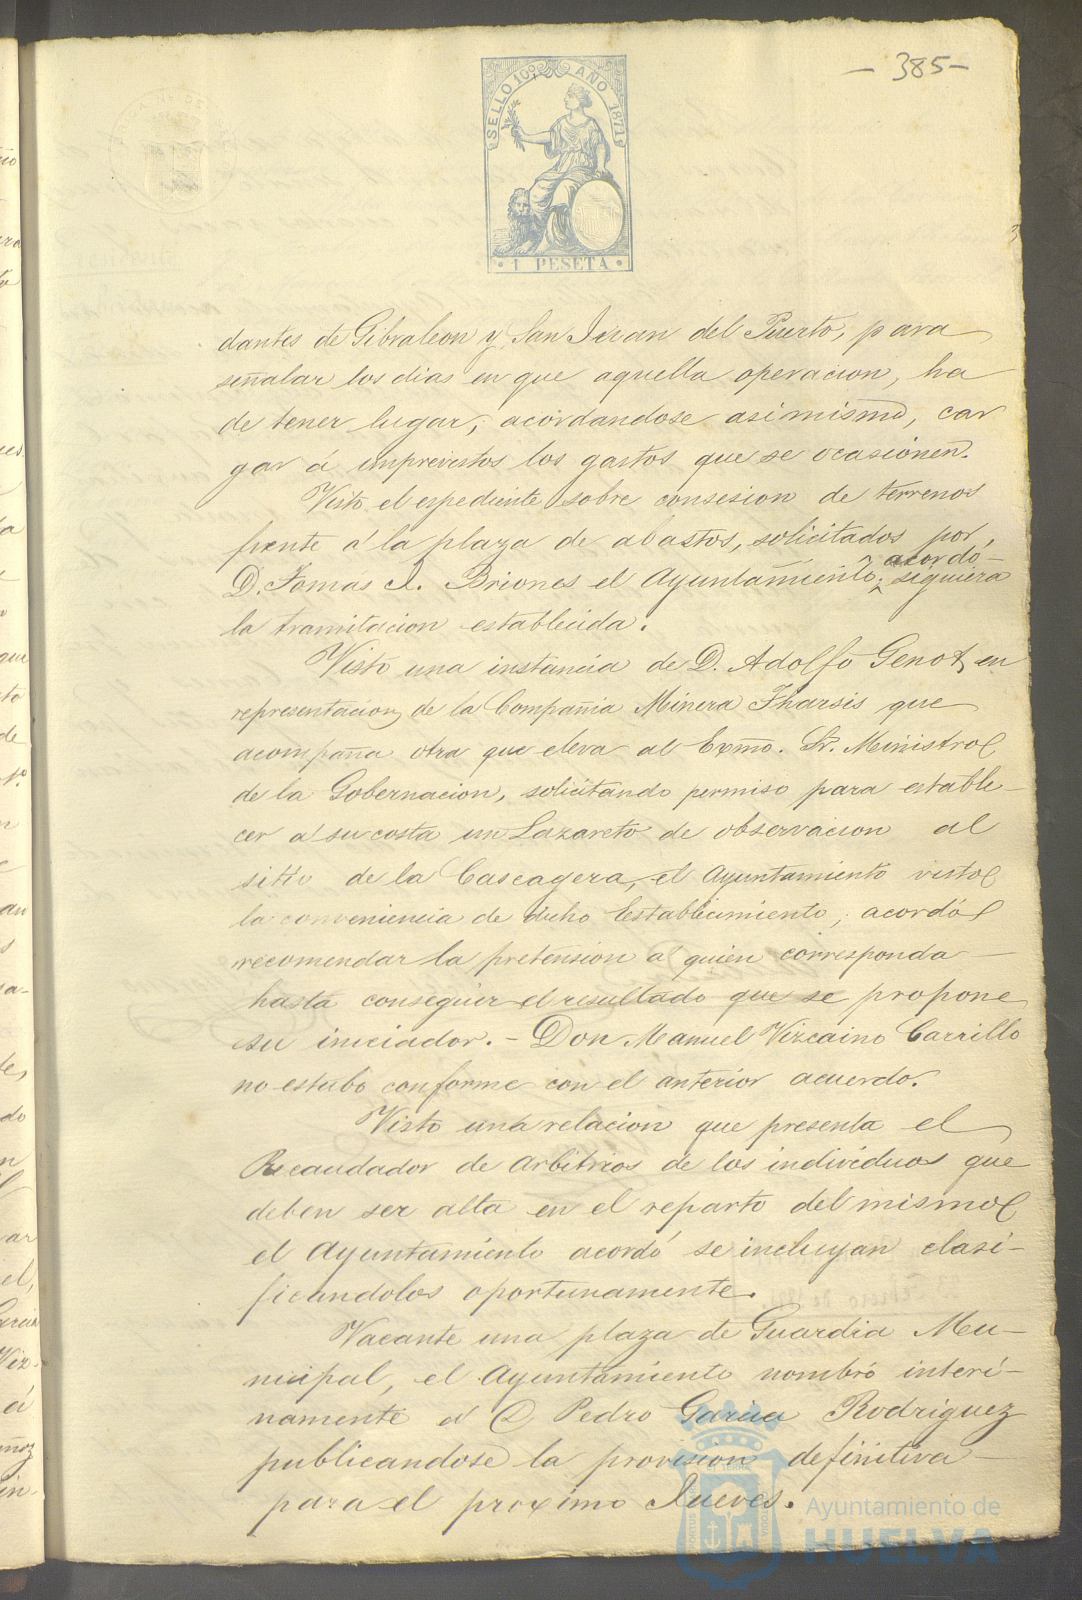 - 385 -
SELLO 10º AÑO 1871
· 1 PESETA ·
dantes de Gibraleon y San Juan del Puerto, para
señalar los dias en que aquella operacion, ha
de tener lugar, acordandose asimismo, car
gar á imprevistos los gastos que se ocasionen.
Visto el espediente sobre consesion de terrenos
frente á la plaza de abastos, solicitados por
D. Tomás J. Briones el Ayuntamiento, acordó siguiera
la tramitacion establecida.
Visto una instancia de D. Adolfo Genot, en
representacion de la Compañia Minera Tharsis que
acompaña otra que eleva al Exmo. Sr. Ministro
de la Gobernacion, solicitando permiso para estable-
cer á su costa un Lazareto de observacion al
sitio de la Cascagera, el Ayuntamiento visto
la conveniencia de dicho Establecimiento, acordó
recomendar la pretension á quien corresponda
hasta conseguir el resultado que se propone
su iniciador. - Don Manuel Vizcaino Carrillo
no estubo conforme con el anterior acuerdo.
Visto una relacion que presenta el
Recaudador de arbitrios de los individuos que
deben ser alta en el reparto del mismo
el Ayuntamiento acordó se incluyan clasi-
ficandolos oportunamente.
Vacante una plaza de Guardia Mu-
nicipal, el Ayuntamiento nombró interi-
namente á D. Pedro Garcia Rodriguez
publicandose la provision definitiva
para el proximo Jueves.
Ayuntamiento de
HUELVA